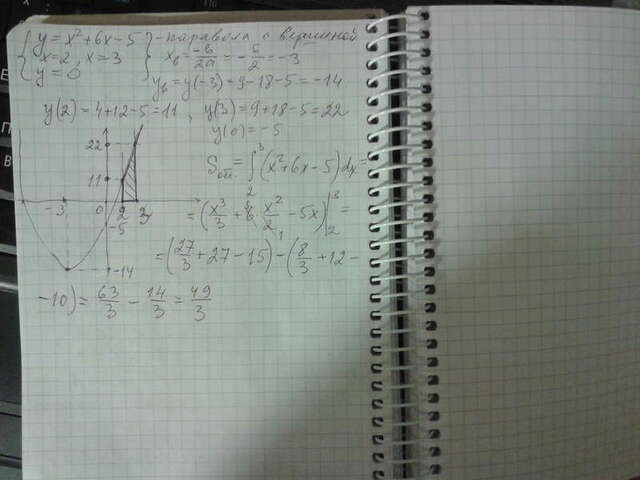 { y = x² + 6x - 5 } - парабола с вершиной
x = 2, x = 3
y = 0
x₆ = -6/2a = -6/2 = -3
y₆ = y(-3) = 9 - 18 - 5 = -14
y(2) = 4 + 12 - 5 = 11, y(3) = 9 + 18 - 5 = 22
y(0) = -5
22
11
-3 0 2 3
-5
-14
= ∫₂³ (x² + 6x - 5) dx =
= (x³/3 + 6 x²/2 - 5x) |₂³ =
= (27/3 + 27 - 15) - (8/3 + 12 -
- 10) = 63/3 - 14/3 = 49/3